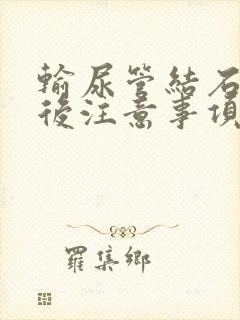 輸尿管結石
後注意事項
羅集鄉